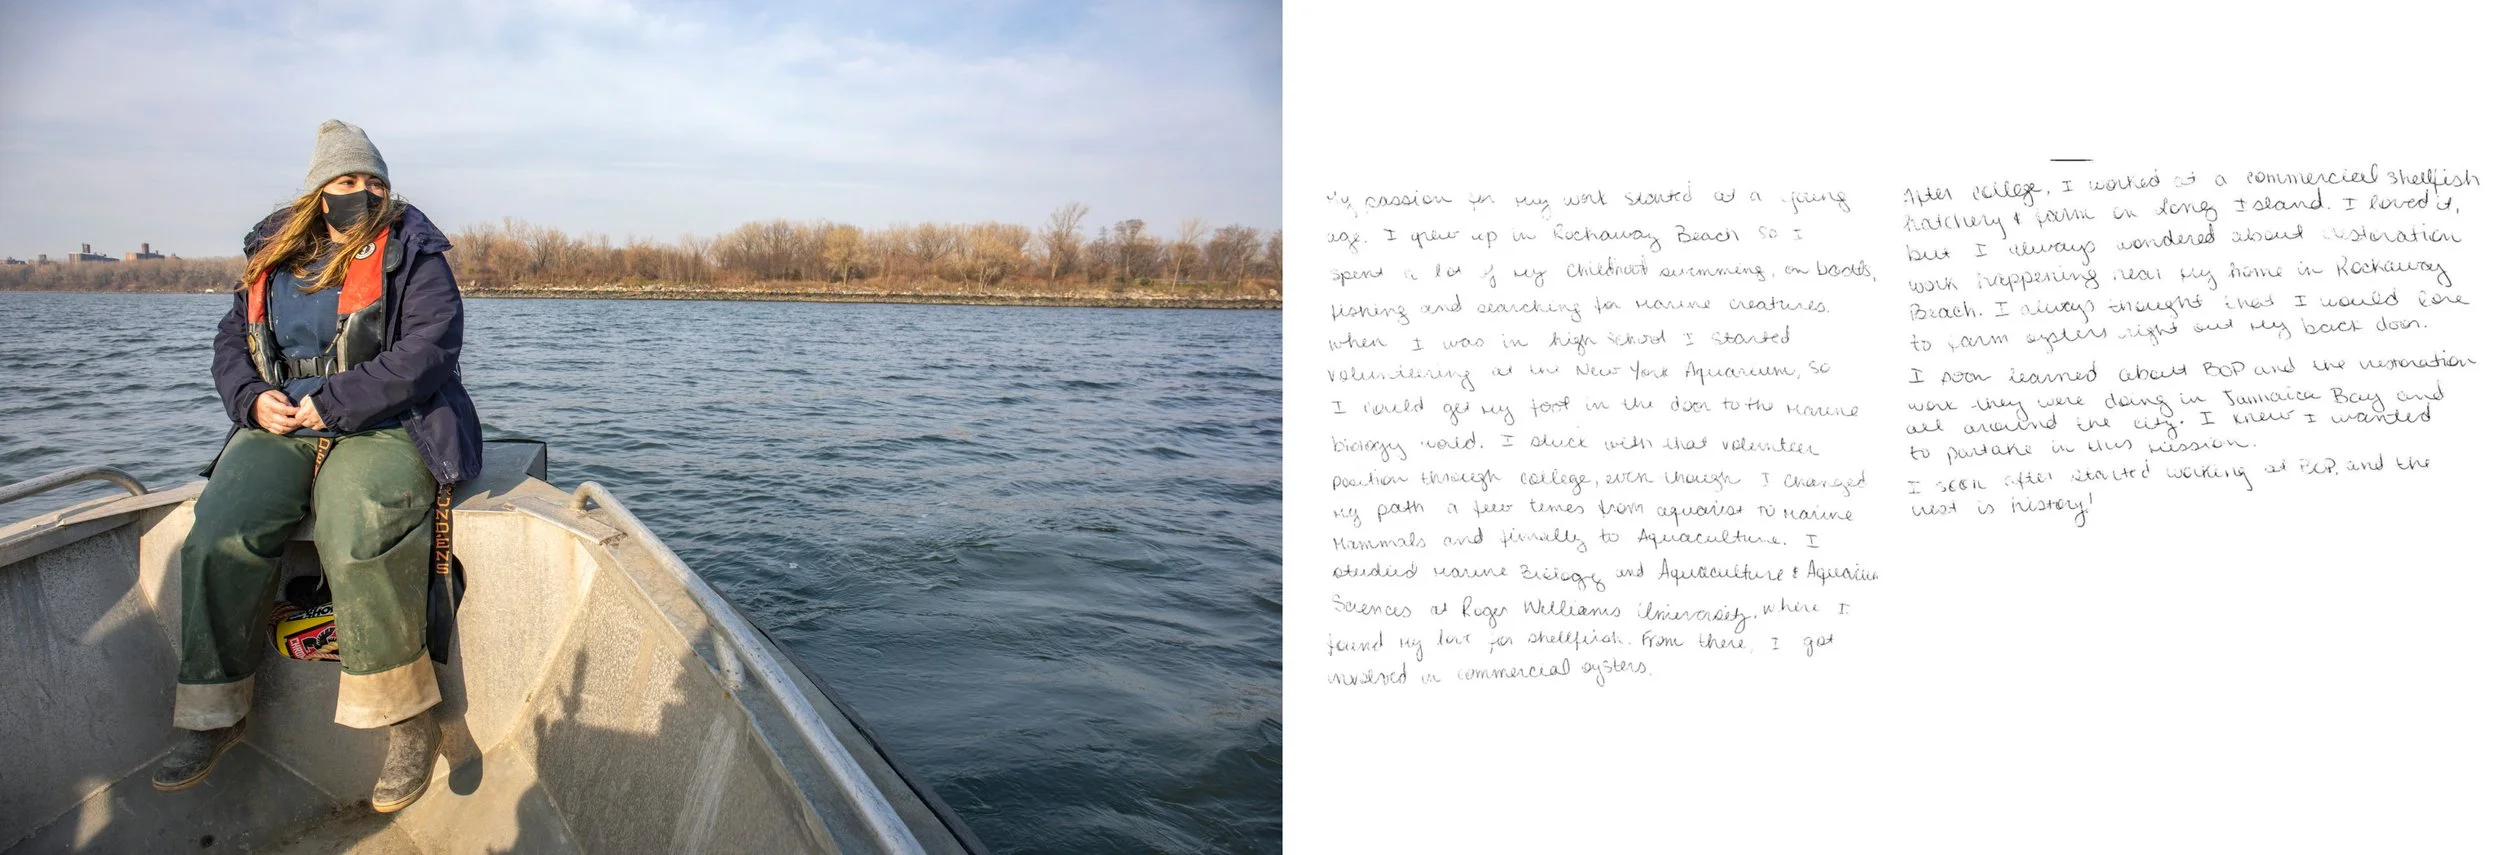 GRUNDENS
My passion for my work started at a young
age. I grew up in Rockaway Beach so I
spent a lot of my childhood swimming, on boats,
fishing and searching for marine creatures.
when I was in high school I started
volunteering at the New York Aquarium, so
I could get my foot in the door to the marine
biology world. I stuck with that volunteer
position through college, even though I changed
my path a few times from aquarist to marine
mammals and finally to Aquaculture. I
studied marine Biology and Aquaculture & Aquarium
Sciences at Roger Williams University, where I
found my love for shellfish. From there, I got
involved in commercial oysters.
After college, I worked at a commercial shellfish
hatchery & farm on Long Island. I loved it,
but I always wondered about restoration
work happening near my home in Rockaway
Beach. I always thought that I would love
to farm oysters right out my back door.
I soon learned about BOP and the restoration
work they were doing in Jamaica Bay and
all around the city. I knew I wanted
to partake in this mission.
I soon after started working at BOP, and the
rest is history!